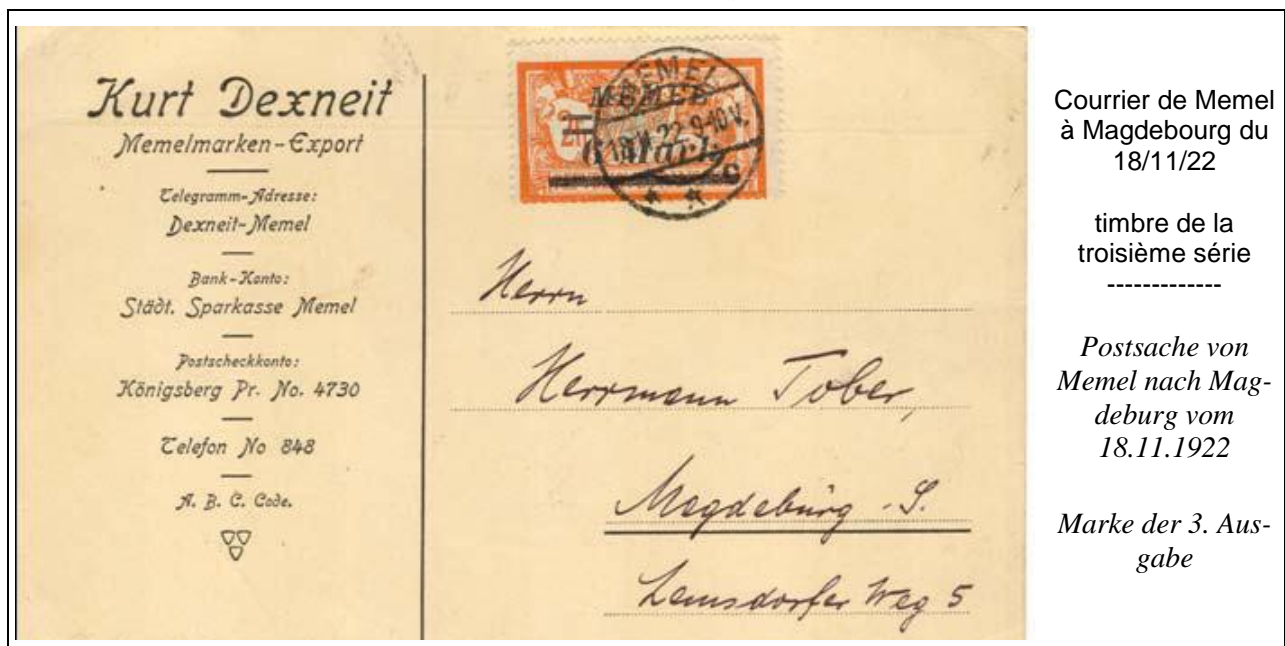 Kurt Dexneit
Memelmarken-Export
Telegramm-Adresse:
Dexneit-Memel
Bank-Konto:
Städt. Sparkasse Memel
Postscheckkonto:
Königsberg Pr. No. 4730
Telefon No 848
A. B. C. Code.
MEMEL
MEMEL
22. 9-10 V.
Mark
c
Herrn
Herrmann Tober,
Magdebürg - S.
Lemsdorfer Weg 5
Courrier de Memel
à Magdebourg du
18/11/22
timbre de la
troisième série
-------------
Postsache von
Memel nach Mag-
deburg vom
18.11.1922
Marke der 3. Aus-
gabe